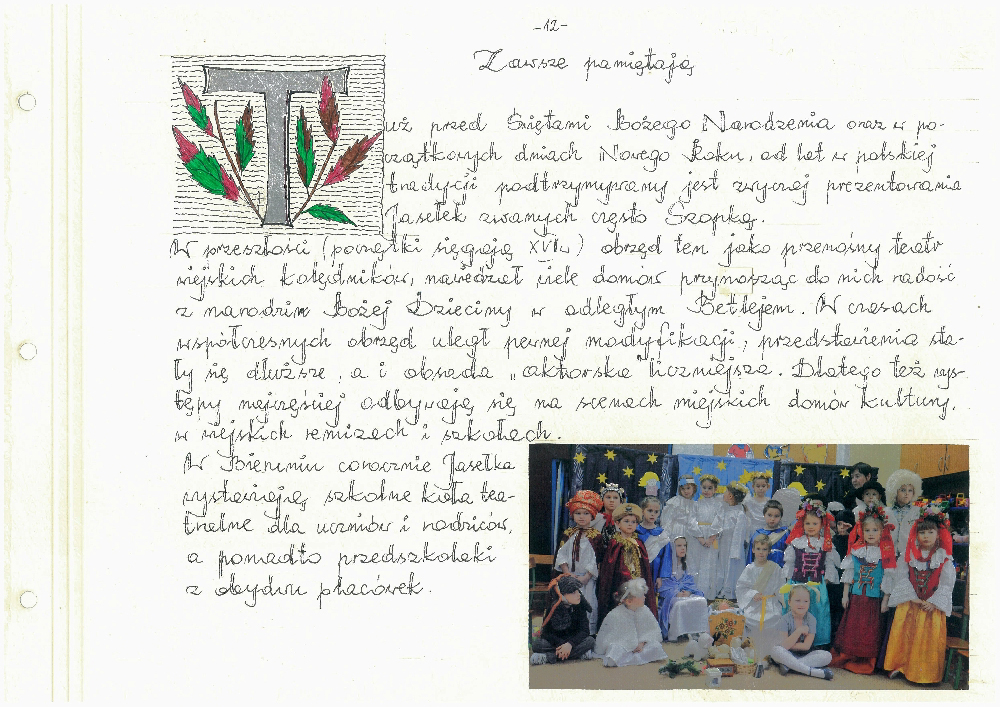 -12-
Zawsze pamiętają
Tuż przed Świętami Bożego Narodzenia oraz w po-
czątkowych dniach Nowego Roku, od lat w polskiej
tradycji podtrzymywany jest zwyczaj prezentowania
Jasełek zwanych często Szopką.
W przeszłości (początki sięgają XVIw) obrzęd ten jako przenośny teatr
wiejskich kolędników, nawiedzał wiele domów przynosząc do nich radość
z narodzin Bożej Dzieciny w odległym Betlejem. W czasach
współczesnych obrzęd uległ pewnej modyfikacji, przedstawienia sta-
ły się dłuższe, a i obsada „aktorska liczniejsza. Dlatego też wys-
tępy najczęściej odbywają się na scenach miejskich domów kultury,
w wiejskich remizach i szkołach.
W Bieruniu corocznie Jasełka
wystawiają szkolne koła tea-
tralne dla uczniów i rodziców,
a ponadto przedszkolaki
z obydwu placówek.